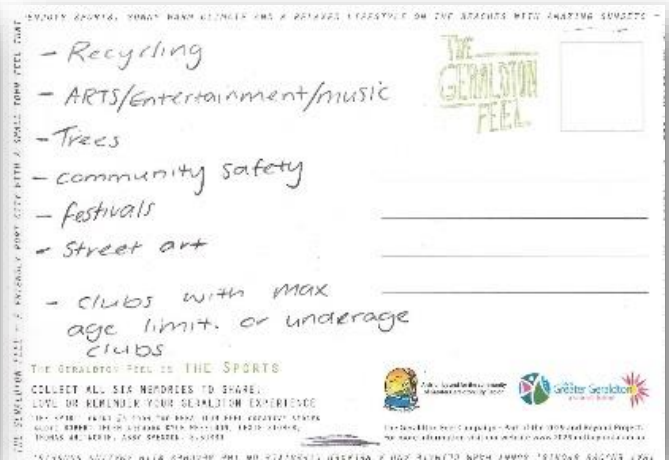 ENJOY SPORTS, SUNNY WARM CLIMATE AND A RELAXED LIFESTYLE ON THE BEACHES WITH AMAZING SUNSETS
- Recycling
- ARTS/Entertainment/music
- Trees
- community safety
- festivals
- Street art
- clubs with max
age limit. or underage
clubs
THE
GERALDTON
FEEL
THE GERALDTON FEEL IS THE SPORTS
COLLECT ALL SIX MEMORIES TO SHARE,
LOVE OR REMEMBER YOUR GERALDTON EXPERIENCE
Greater Geraldton
The Geraldton Feel Campaign - Part of the 2029 and Beyond Project.
For more information visit our website www.2029andbeyond.com.au